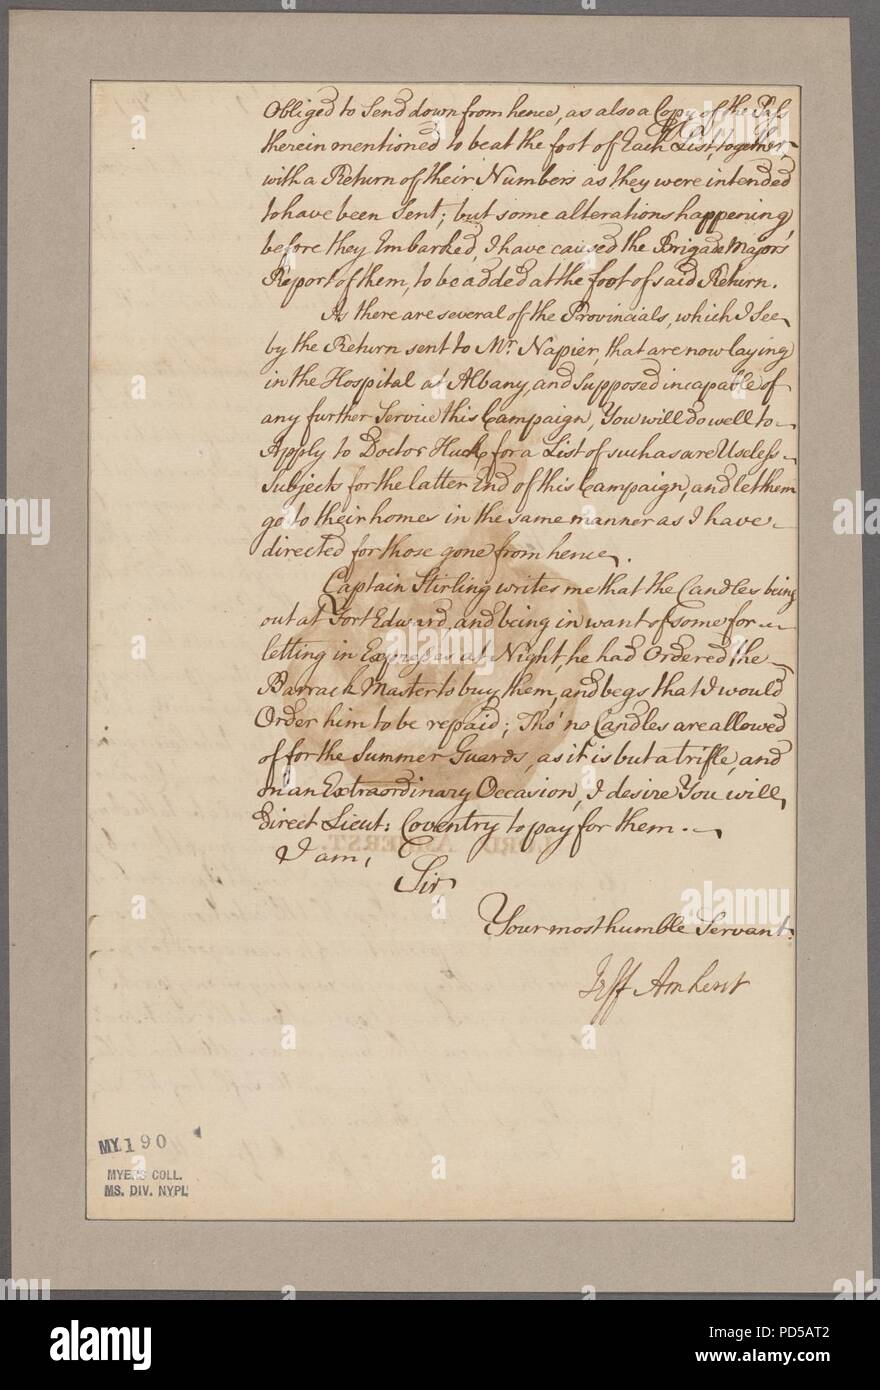 Obliged to Send down from hence, as also a Copy of the Pass
therein mentioned to be at the foot of Each List, together,
with a Return of their Numbers as they were intended
to have been Sent; but some alterations happening
before they Embarked, I have caused the Brigade Majors
Report of them, to be added at the foot of said Return.
As there are several of the Provincials, which I See
by the Return sent to Mr. Napier, that are now laying
in the Hospital at Albany, and Supposed incapable of
any further Service this Campaign, You will do well to
Apply to Doctor Huck for a List of such as are Useless
Subjects for the latter End of this Campaign, and let them
go to their homes in the same manner as I have
directed for those gone from hence.
Captain Stirling writes me that the Candles being
out at Fort Edward, and being in want of some for
letting in Expresses at Night, he had Ordered the
Barrack Master to buy them, and begs that I would
Order him to be repaid; Tho' no Candles are allowed
of for the Summer Guards, as it is but a trifle, and
in an Extraordinary Occasion, I desire You will
direct Lieut: Coventry to pay for them.
I am,
Sir
Your most humble Servant.
Jeff Amherst
MY 190
MYERS COLL.
MS. DIV. NYPL
alamy
PD5AT2
www.alamy.com